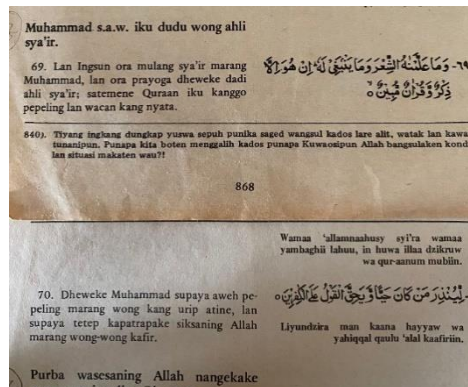 Muhammad s.a.w. iku dudu wong ahli
sya'ir.
69. Lan Ingsun ora mulang sya'ir marang
Muhammad, lan ora prayoga dheweke dadi
ahli sya'ir; satemene Quraan iku kanggo
pepeling lan wacan kang nyata.
٦٩- وَمَا عَلَّمْنٰهُ الشِّعْرَ وَمَا يَنْبَغِيْ لَهٗ ۗ اِنْ هُوَ اِلَّا
ذِكْرٌ وَّقُرْاٰنٌ مُّبِيْنٌ ۝
840). Tiyang ingkang dungkap yuswa sepuh punika saged wangsul kados lare alit, watak lan kawa
tunanipun. Punapa kita boten menggalih kados punapa Kuwaosipun Allah bangsulaken kond
lan situasi makaten wau?!
868
Wamaa 'allamnaahusy syi'ra wamaa
yambaghii lahuu, in huwa illaa dzikruw
wa qur-aanum mubiin.
70. Dheweke Muhammad supaya aweh pe-
peling marang wong kang urip atine, lan
supaya tetep kapatrapake siksaning Allah
marang wong-wong kafir.
لِيُنْذِرَ مَنْ كَانَ حَيًّا وَّيَحِقَّ الْقَوْلُ عَلَى الْكٰفِرِيْنَ ۝
Liyundzira man kaana hayyaw wa
yahiqqal qaulu 'alal kaafiriin.
Purba wasesaning Allah nangekake